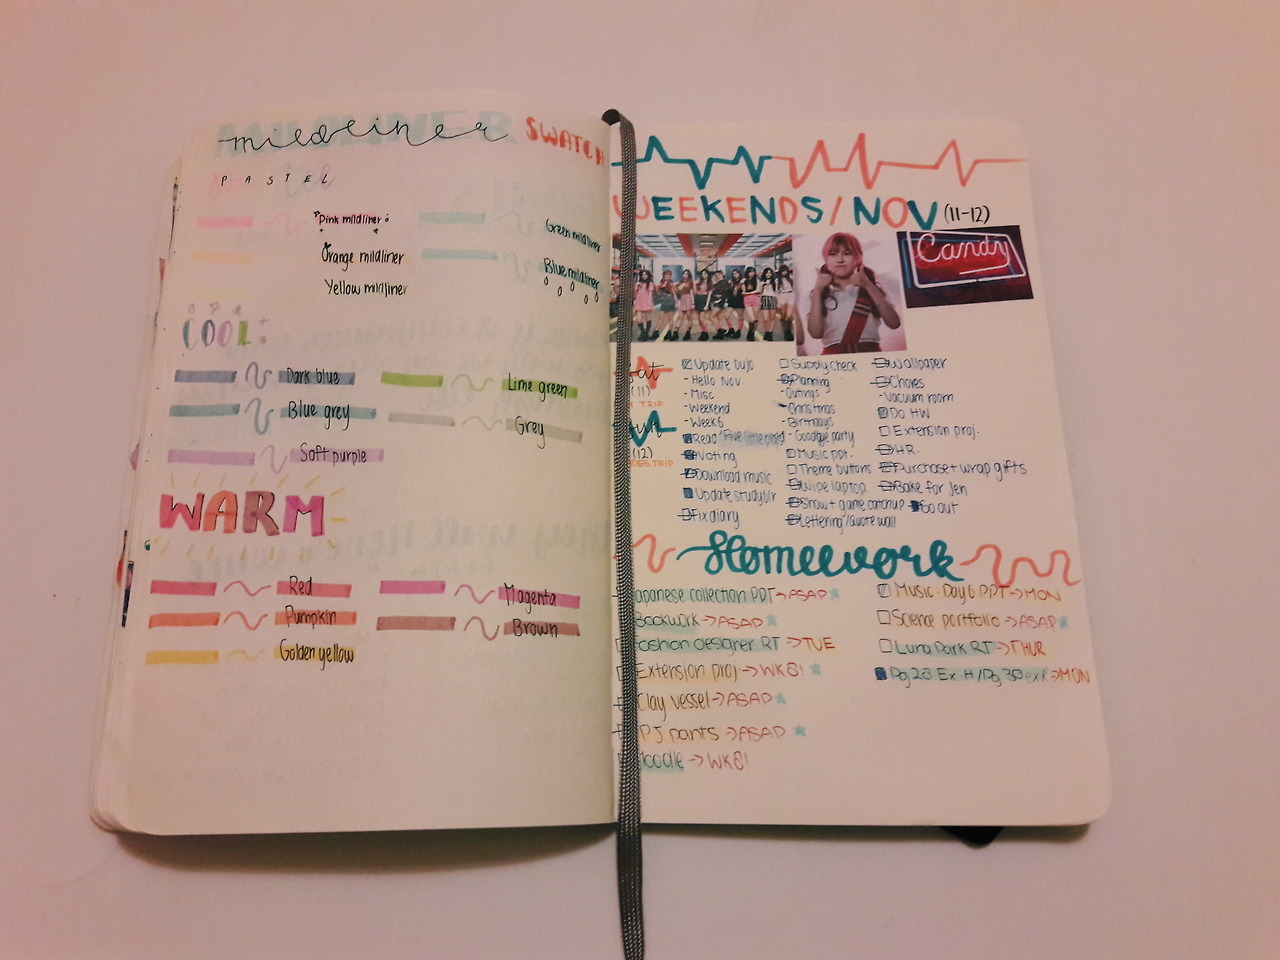 mildliner SWATCH
PASTEL
Pink mildliner
Green mildliner
Orange mildliner
Blue mildliner
Yellow mildliner
COOL
Dark blue
Lime green
Blue grey
Grey
Soft purple
WARM
Red
Magenta
Pumpkin
Brown
Golden yellow
WEEKENDS/NOV (11-12)
Candy
Sat
(11)
TRIP
Sun
(12)
TRIP
Update bujo
- Hello Nov.
- Misc
- Weekend
- Week 6
Read "Five little pigs"
Voting
Download music
Update studyblr
Fix diary
Supply check
Planning
- Outings
- Christmas
- Birthdays
- Goodbye party
Music ppt.
Theme buttons
Wipe laptop
Show + game catchup
Lettering/quote wall
Wallpaper
Chores
- Vacuum room
Do HW
Extension proj.
HR.
Purchase + wrap gifts
Bake for Jen
Go out
Homework
Japanese collection PPT → ASAP
Bookwork → ASAP
Fashion designer RT → TUE
Extension proj → WK8!
Clay vessel → ASAP
PJ pants → ASAP
Moodle → WK8!
Music. Day6 PPT → MON
Science portfolio → ASAP
Luna Park RT → THUR
Pg 28 Ex H / Pg 30 ex K → MON